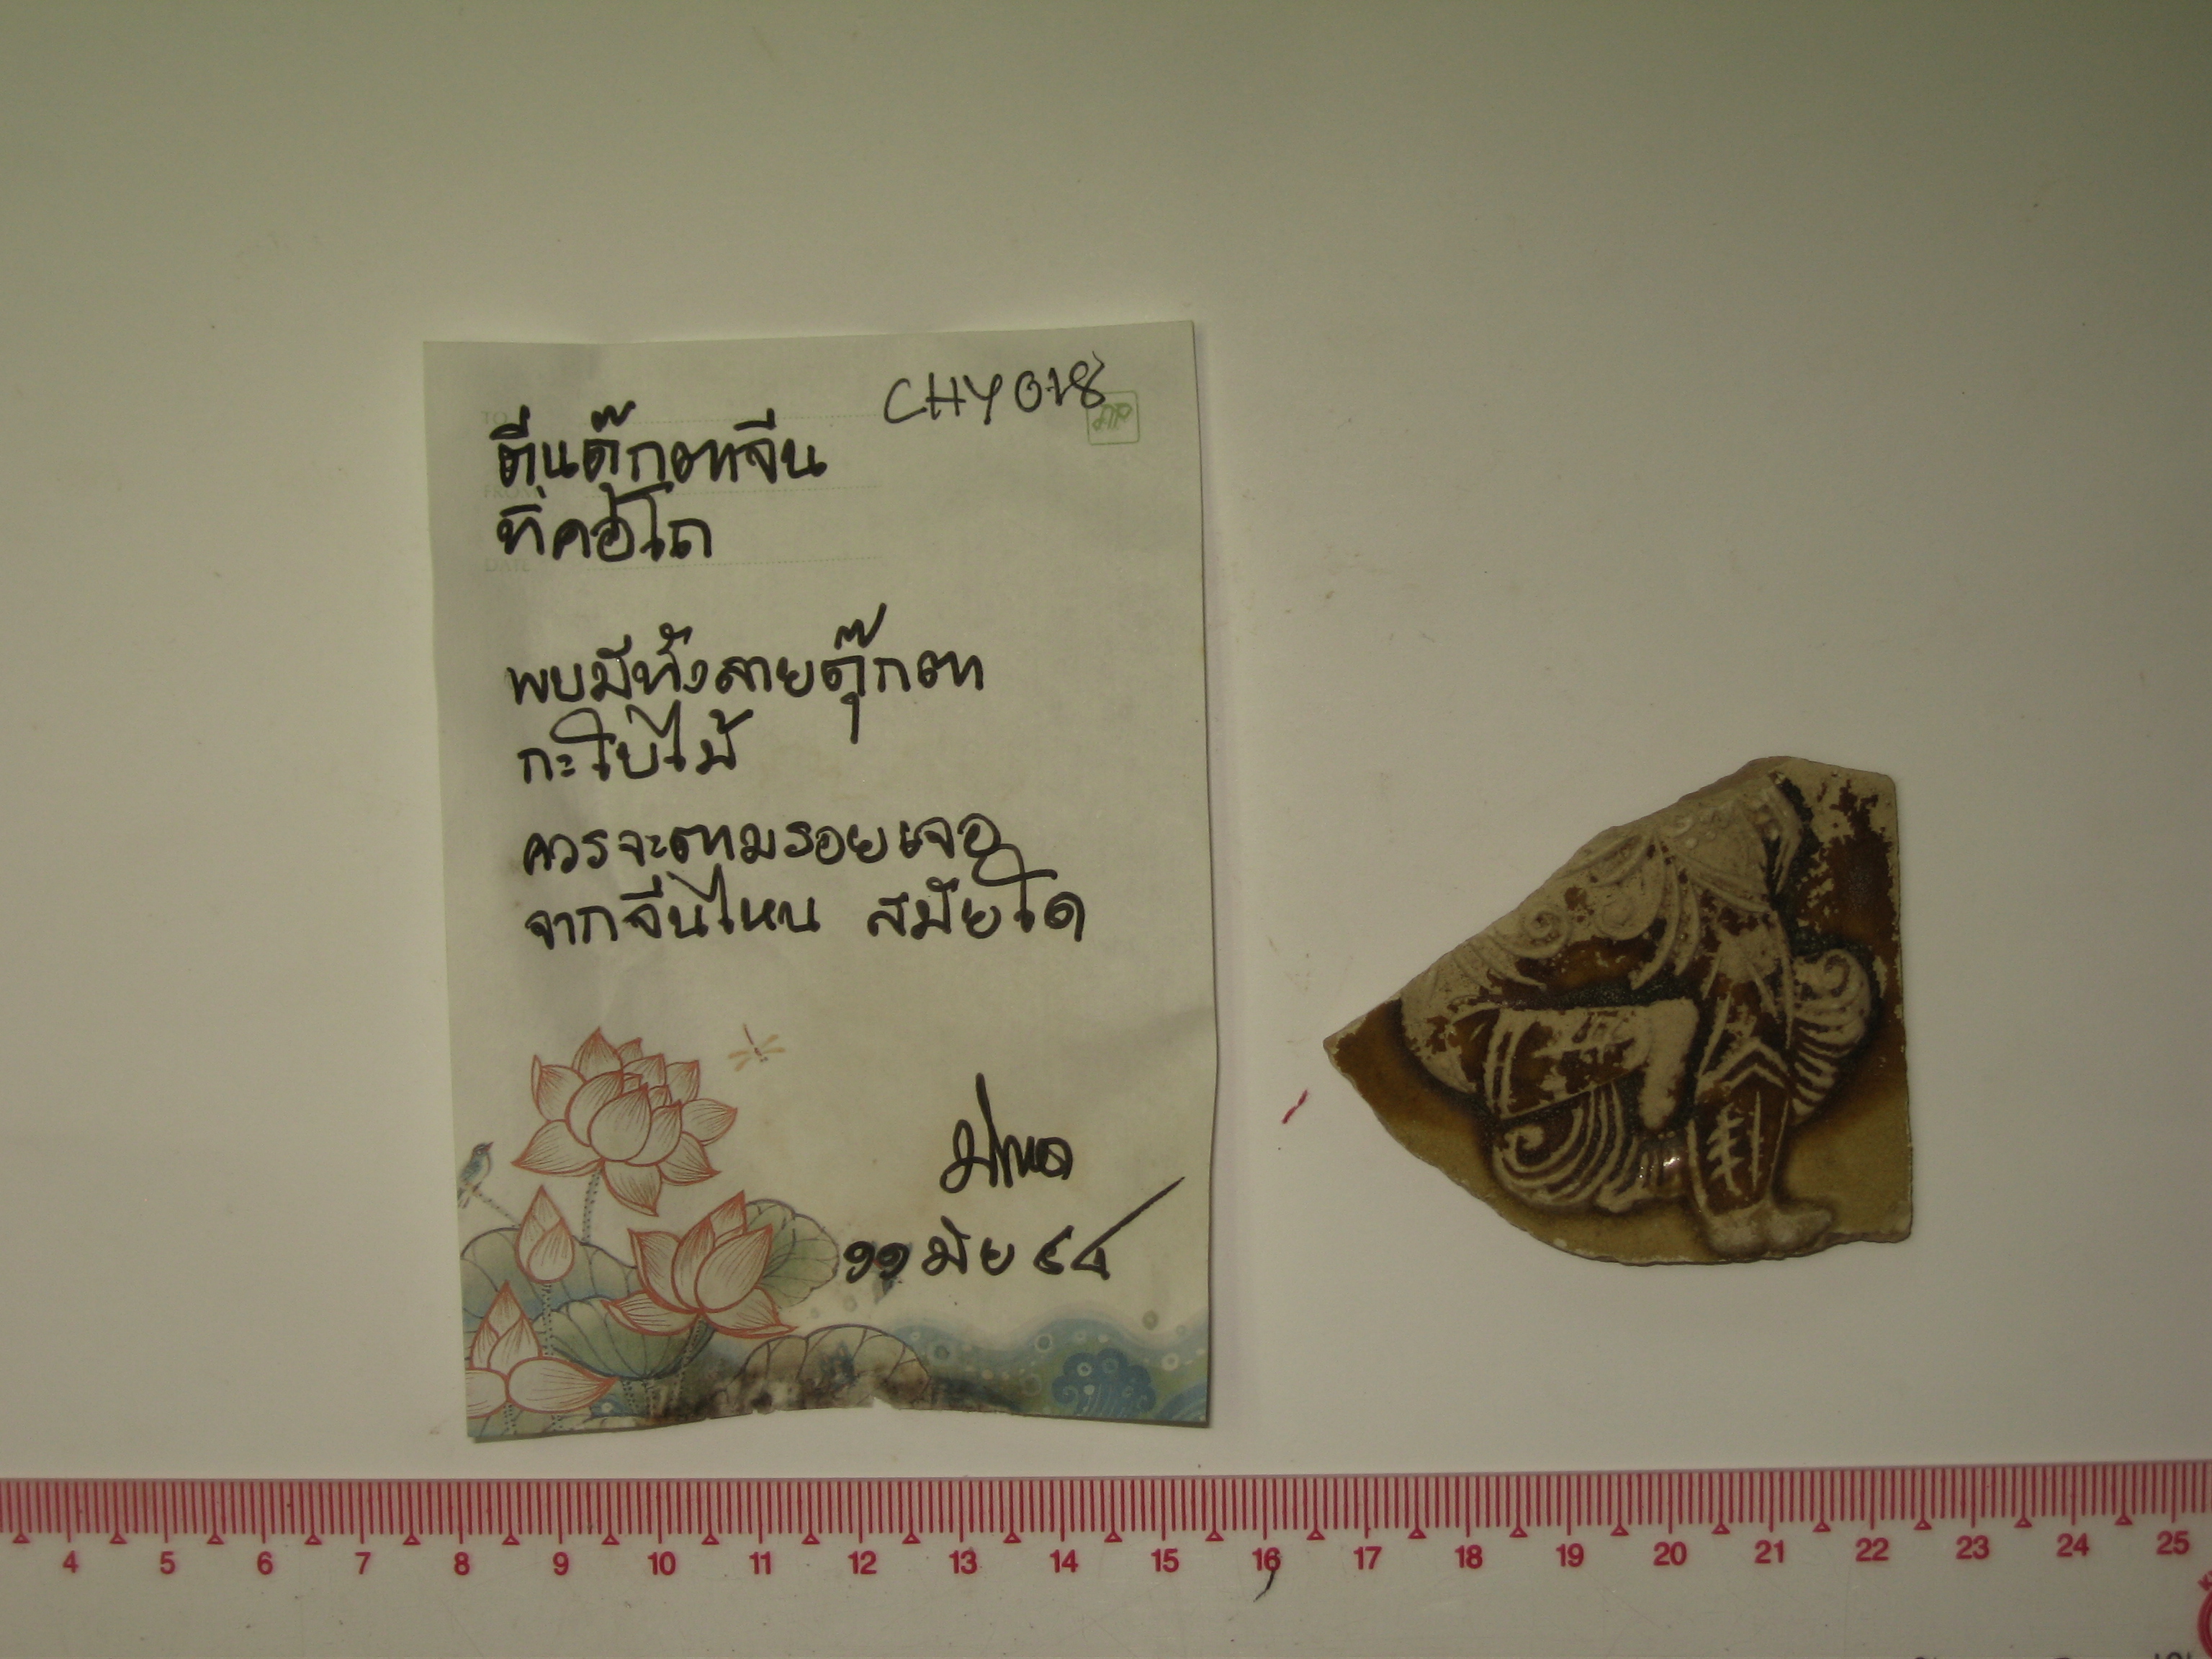 CHY018
TO
ตีนตุ๊กตาจีน
FROM
ที่ Kอ Kho
DATE
พบมีทั้งลายตุ๊กตา
กะใบไม้
ควรจะตามรอยเจอ
จากจีนไหน สมัยใด
๑๑ มิย ๖๔
4 5 6 7 8 9 10 11 12 13 14 15 16 17 18 19 20 21 22 23 24 25